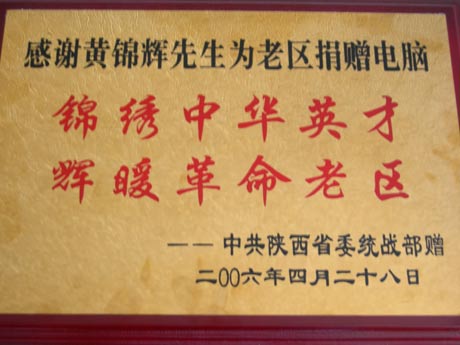 感谢黄锦辉先生为老区捐赠电脑
锦绣中华英才
辉暖革命老区
——中共陕西省委统战部赠
二〇〇六年四月二十八日